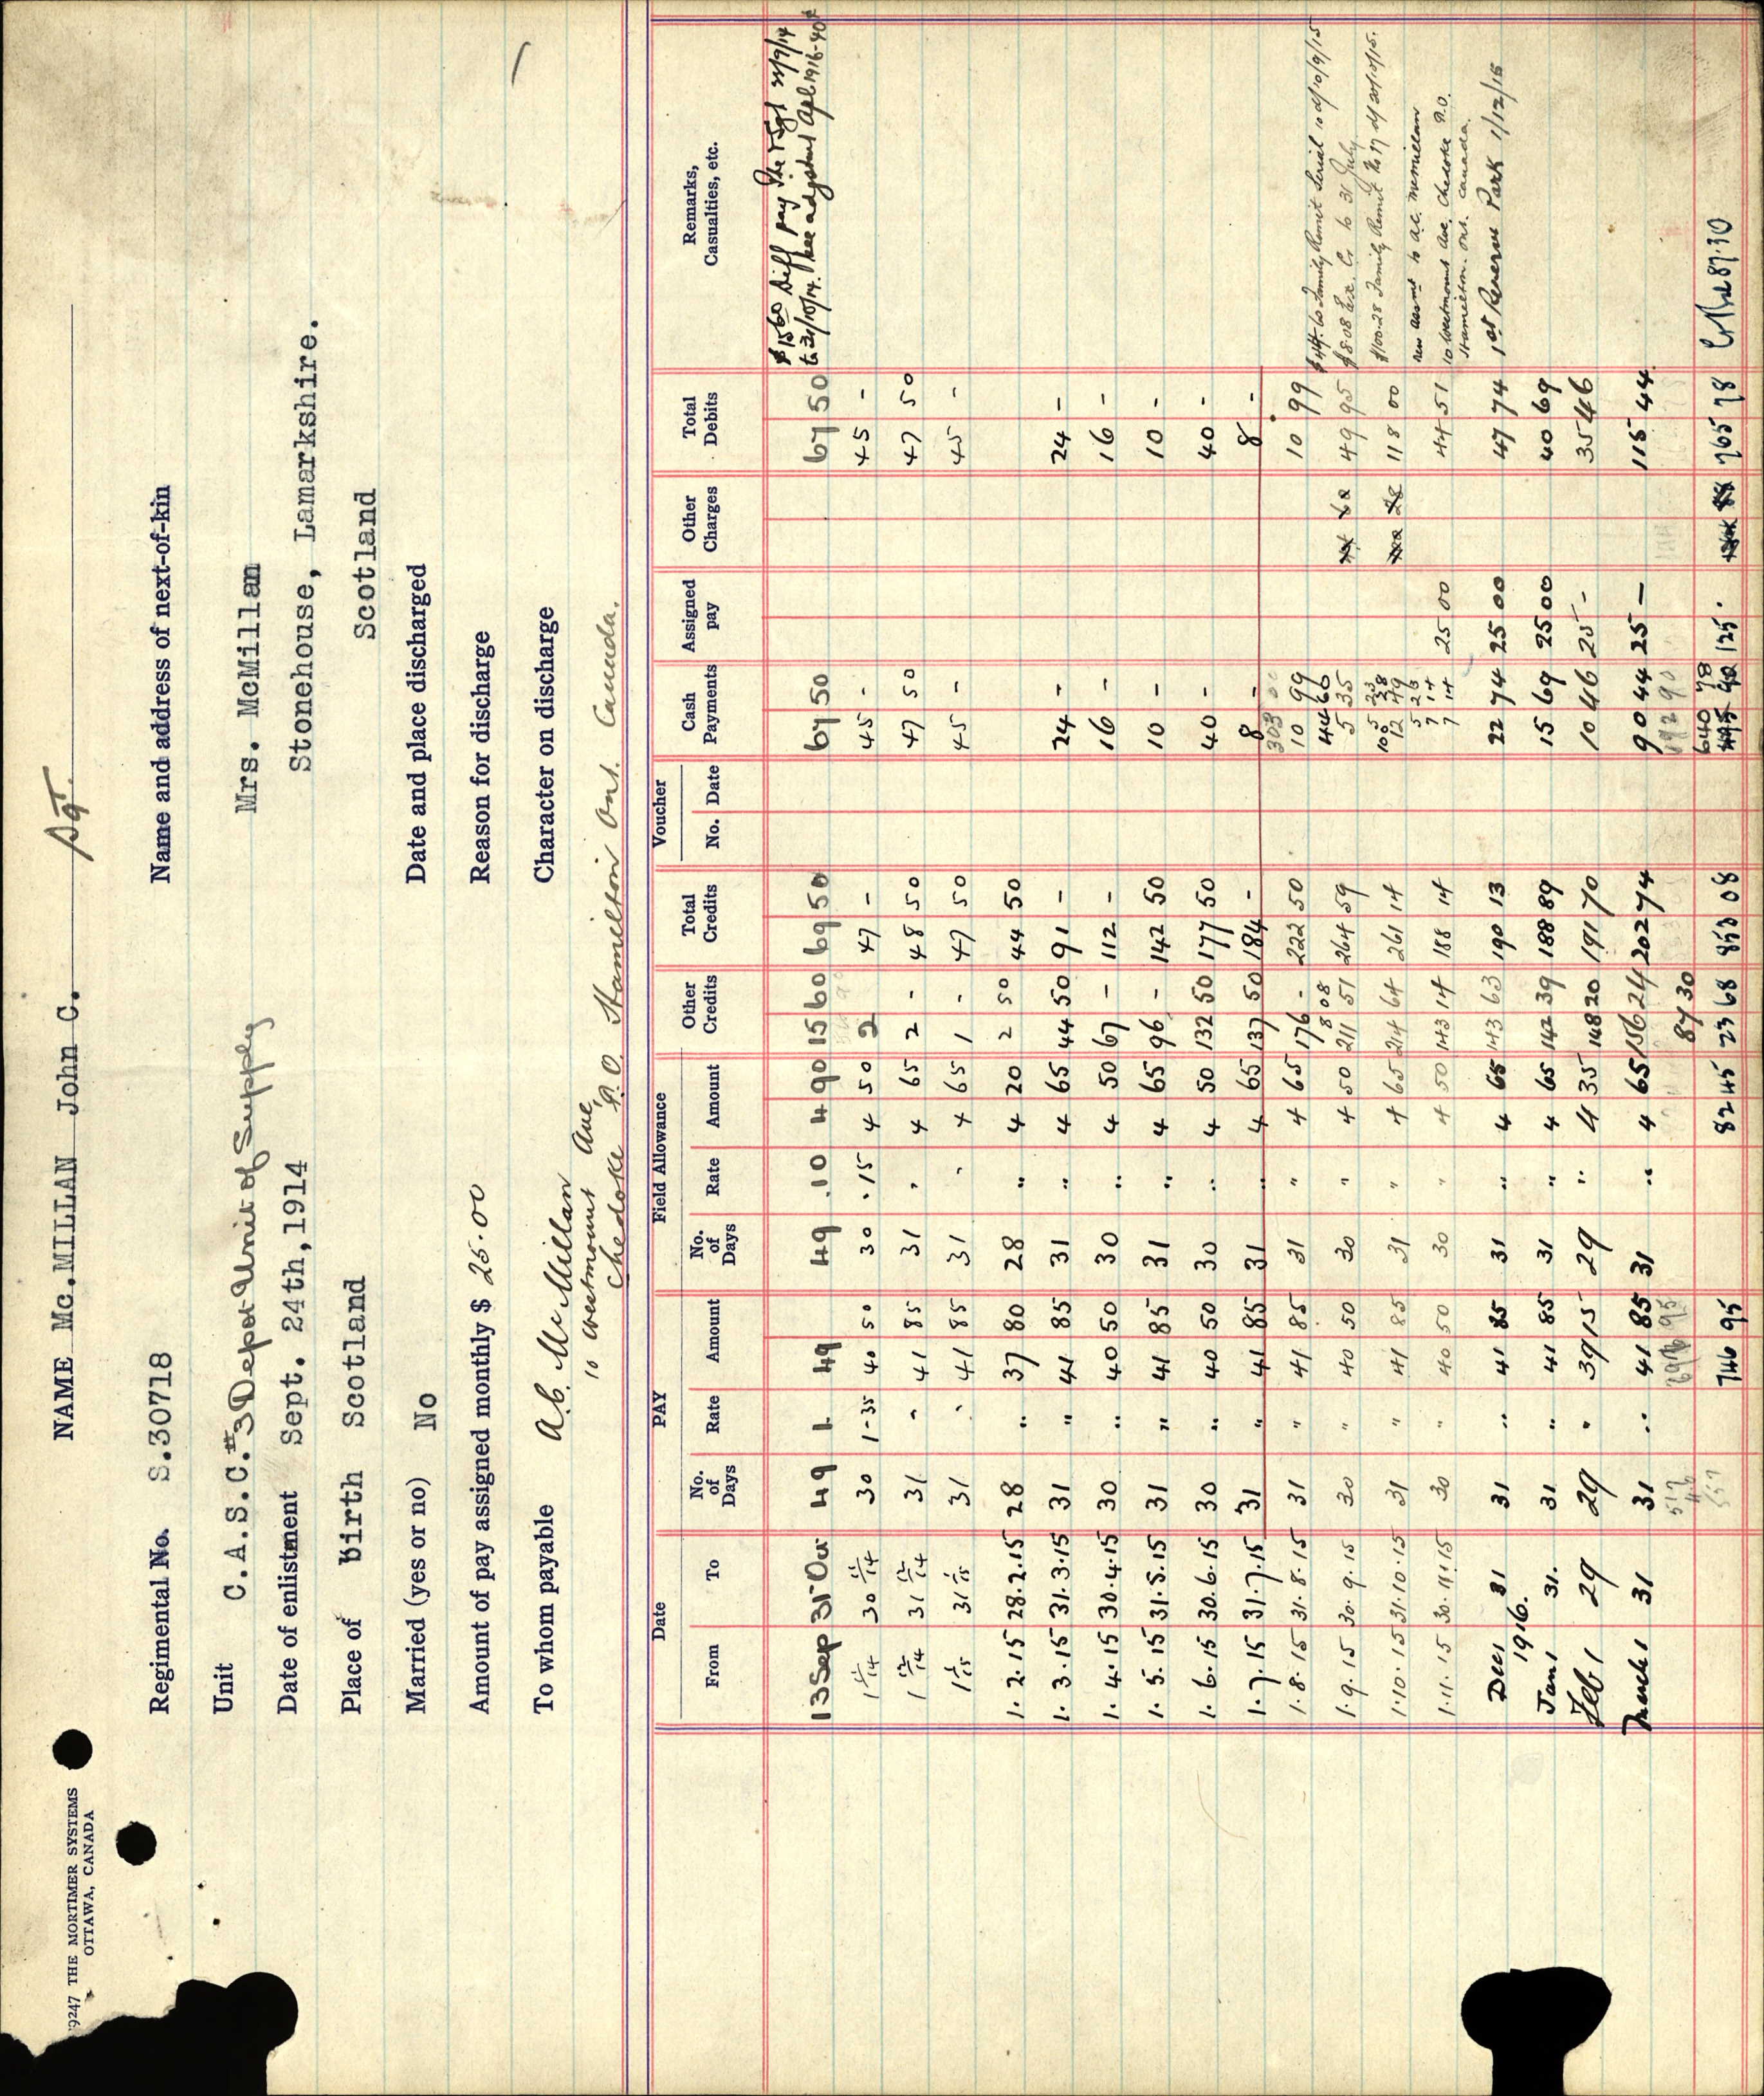 9247 THE MORTIMER SYSTEMS
OTTAWA, CANADA
NAME Mc.MILLAN John C. Sgt.
Regimental No. S.30718
Unit C.A.S.C. #3 Depot Unit of Supply
Date of enlistment Sept. 24th, 1914
Place of birth Scotland
Married (yes or no) No
Amount of pay assigned monthly $ 25.00
To whom payable A.C. McMillan
10 Westmount Ave,
Chedoke P.O. Hamilton Ont. Canada.
Name and address of next-of-kin
Mrs. McMillan
Stonehouse, Lamarkshire.
Scotland
Date and place discharged
Reason for discharge
Character on discharge
Date PAY Field Allowance Other Credits Total Credits Voucher Cash Payments Assigned pay Other Charges Total Debits Remarks, Casualties, etc.
From To No. of Days Rate Amount No. of Days Rate Amount No. Date
13 Sep 31 Oct 49 1 49 49 .10 4 90 15 60 69 50 67 50 67 50 $15.60 Diff pay Pte & Sgt 22/9/14
to 31/10/14. See adjustment Apl. 1916
1 11/14 30 11/14 30 1-35 40 50 30 .15 4 50 2 47 - 45 - 45 -
1 12/14 31 12/14 31 41 85 31 4 65 2 - 48 50 47 50 47 50
1 1/15 31 1/15 31 41 85 31 4 65 1 - 47 50 45 - 45 -
1.2.15 28.2.15 28 " 37 80 28 " 4 20 2 50 44 50
1.3.15 31.3.15 31 " 41 85 31 " 4 65 44 50 91 - 24 - 24 -
1.4.15 30.4.15 30 " 40 50 30 " 4 50 67 - 112 - 16 - 16 -
1.5.15 31.5.15 31 " 41 85 31 " 4 65 96 - 142 50 10 - 10 -
1.6.15 30.6.15 30 " 40 50 30 " 4 50 132 50 177 50 40 - 40 -
1.7.15 31.7.15 31 " 41 85 31 " 4 65 137 50 184 - 8 - 8 -
303 00
1.8.15 31.8.15 31 " 41 85 31 " 4 65 176 - 222 50 10 99 10 99
8 08 44 60 $44.60 Family Remit Serial 10 d/10/9/15
1.9.15 30.9.15 30 " 40 50 30 " 4 50 211 51 264 59 5 35 49 95 $8.08 Exc. Cr to 31 July
1.10.15 31.10.15 31 " 41 85 31 " 4 65 214 64 261 14 12 49 118 00 $100.28 Family Remit No 17 d/20/10/15.
1.11.15 30.11.15 30 " 40 50 30 " 4 50 143 14 188 14 7 14 25 00 44 51
New assmt to A.C. McMillan
10 Westmount Ave. Chedoke P.O.
Hamilton. Ont. Canada.
Dec 1 31 31 " 41 85 31 " 4 65 143 63 190 13 22 74 25 00 47 74 1st Reserve Park 1/12/15
1916.
Jan 1 31. 31 " 41 85 31 " 4 65 142 39 188 89 15 69 25 00 40 69
Feb 1 29 29 " 39 15 29 " 4 35 148 20 191 70 10 46 25 - 35 46
March 1 31 31 " 41 85 31 " 4 65 156 24 202 74 90 44 25 - 115 44
87 30
640 78
746 95 82 45 23 68 853 08 125. 765 78 Cr Bal 87.30